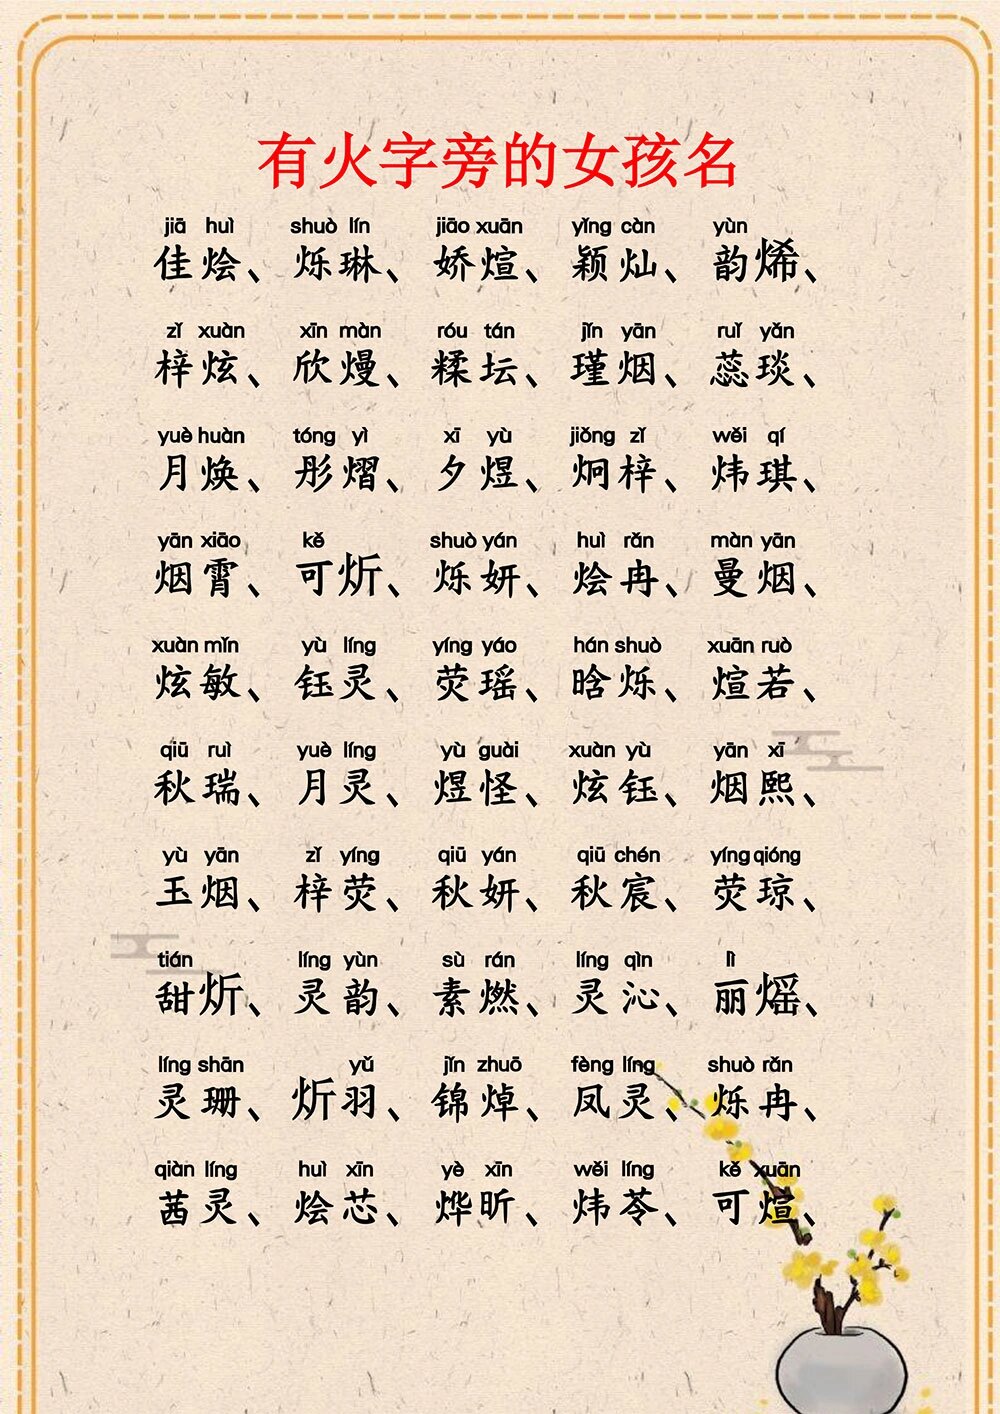 有火字旁的女孩名
jiā huì shuò lín jiāo xuān yǐng càn yùn
佳烩、烁琳、娇煊、颖灿、韵烯、
zǐ xuàn xīn màn róu tán jǐn yān ruǐ yǎn
梓炫、欣熳、糅坛、瑾烟、蕊琰、
yuè huàn tóng yì xī yù jiǒng zǐ wěi qí
月焕、彤熠、夕煜、炯梓、炜琪、
yān xiāo kě shuò yán huì rǎn màn yān
烟霄、可炘、烁妍、烩冉、曼烟、
xuàn mǐn yù líng yíng yáo hán shuò xuān ruò
炫敏、钰灵、荧瑶、晗烁、煊若、
qiū ruì yuè líng yù guài xuàn yù yān xī
秋瑞、月灵、煜怪、炫钰、烟熙、
yù yān zǐ yíng qiū yán qiū chén yíng qióng
玉烟、梓荧、秋妍、秋宸、荧琼、
tián líng yùn sù rán líng qìn lì
甜炘、灵韵、素燃、灵沁、丽熎、
líng shān yǔ jǐn zhuō fèng líng shuò rǎn
灵珊、炘羽、锦焯、凤灵、烁冉、
qiàn líng huì xīn yè xīn wěi líng kě xuān
茜灵、烩芯、烨昕、炜苓、可煊、